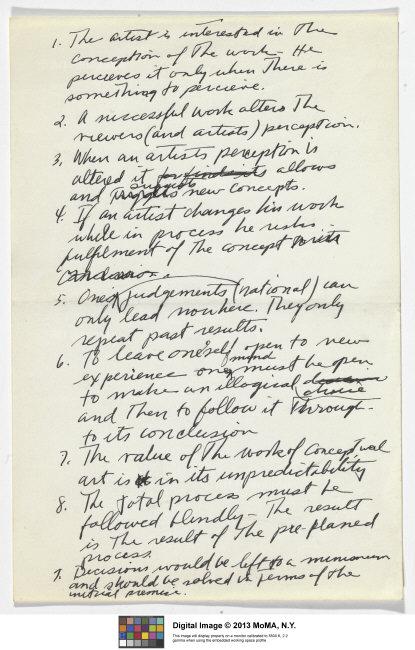 1. The artist is interested in the
conception of the work - He
percieves it only when there is
something to percieve.
2. A successful work alters the
viewers (and artists) perception.
3. When an artists perception is
altered it allows
and suggests new concepts.
4. If an artist changes his work
while in process he risks
fulfilment of the concept
5. One's judgements (rational) can
only lead nowhere. They only
repeat past results.
6. To leave one's self open to new
experience one's mind must be open
to make an illogical choice
and then to follow it through
to its conclusion
7. The value of the work of conceptual
art is in its unpredictability
8. The total process must be
followed blindly - The result
is the result of the pre-planed
process.
9. Decisions would be left to a minimum
and should be solved in terms of the
initial premise.
Digital Image © 2013 MoMA, N.Y.
This image will display properly on a monitor calibrated to 6500 K, 2.2
gamma when using the embedded working space profile